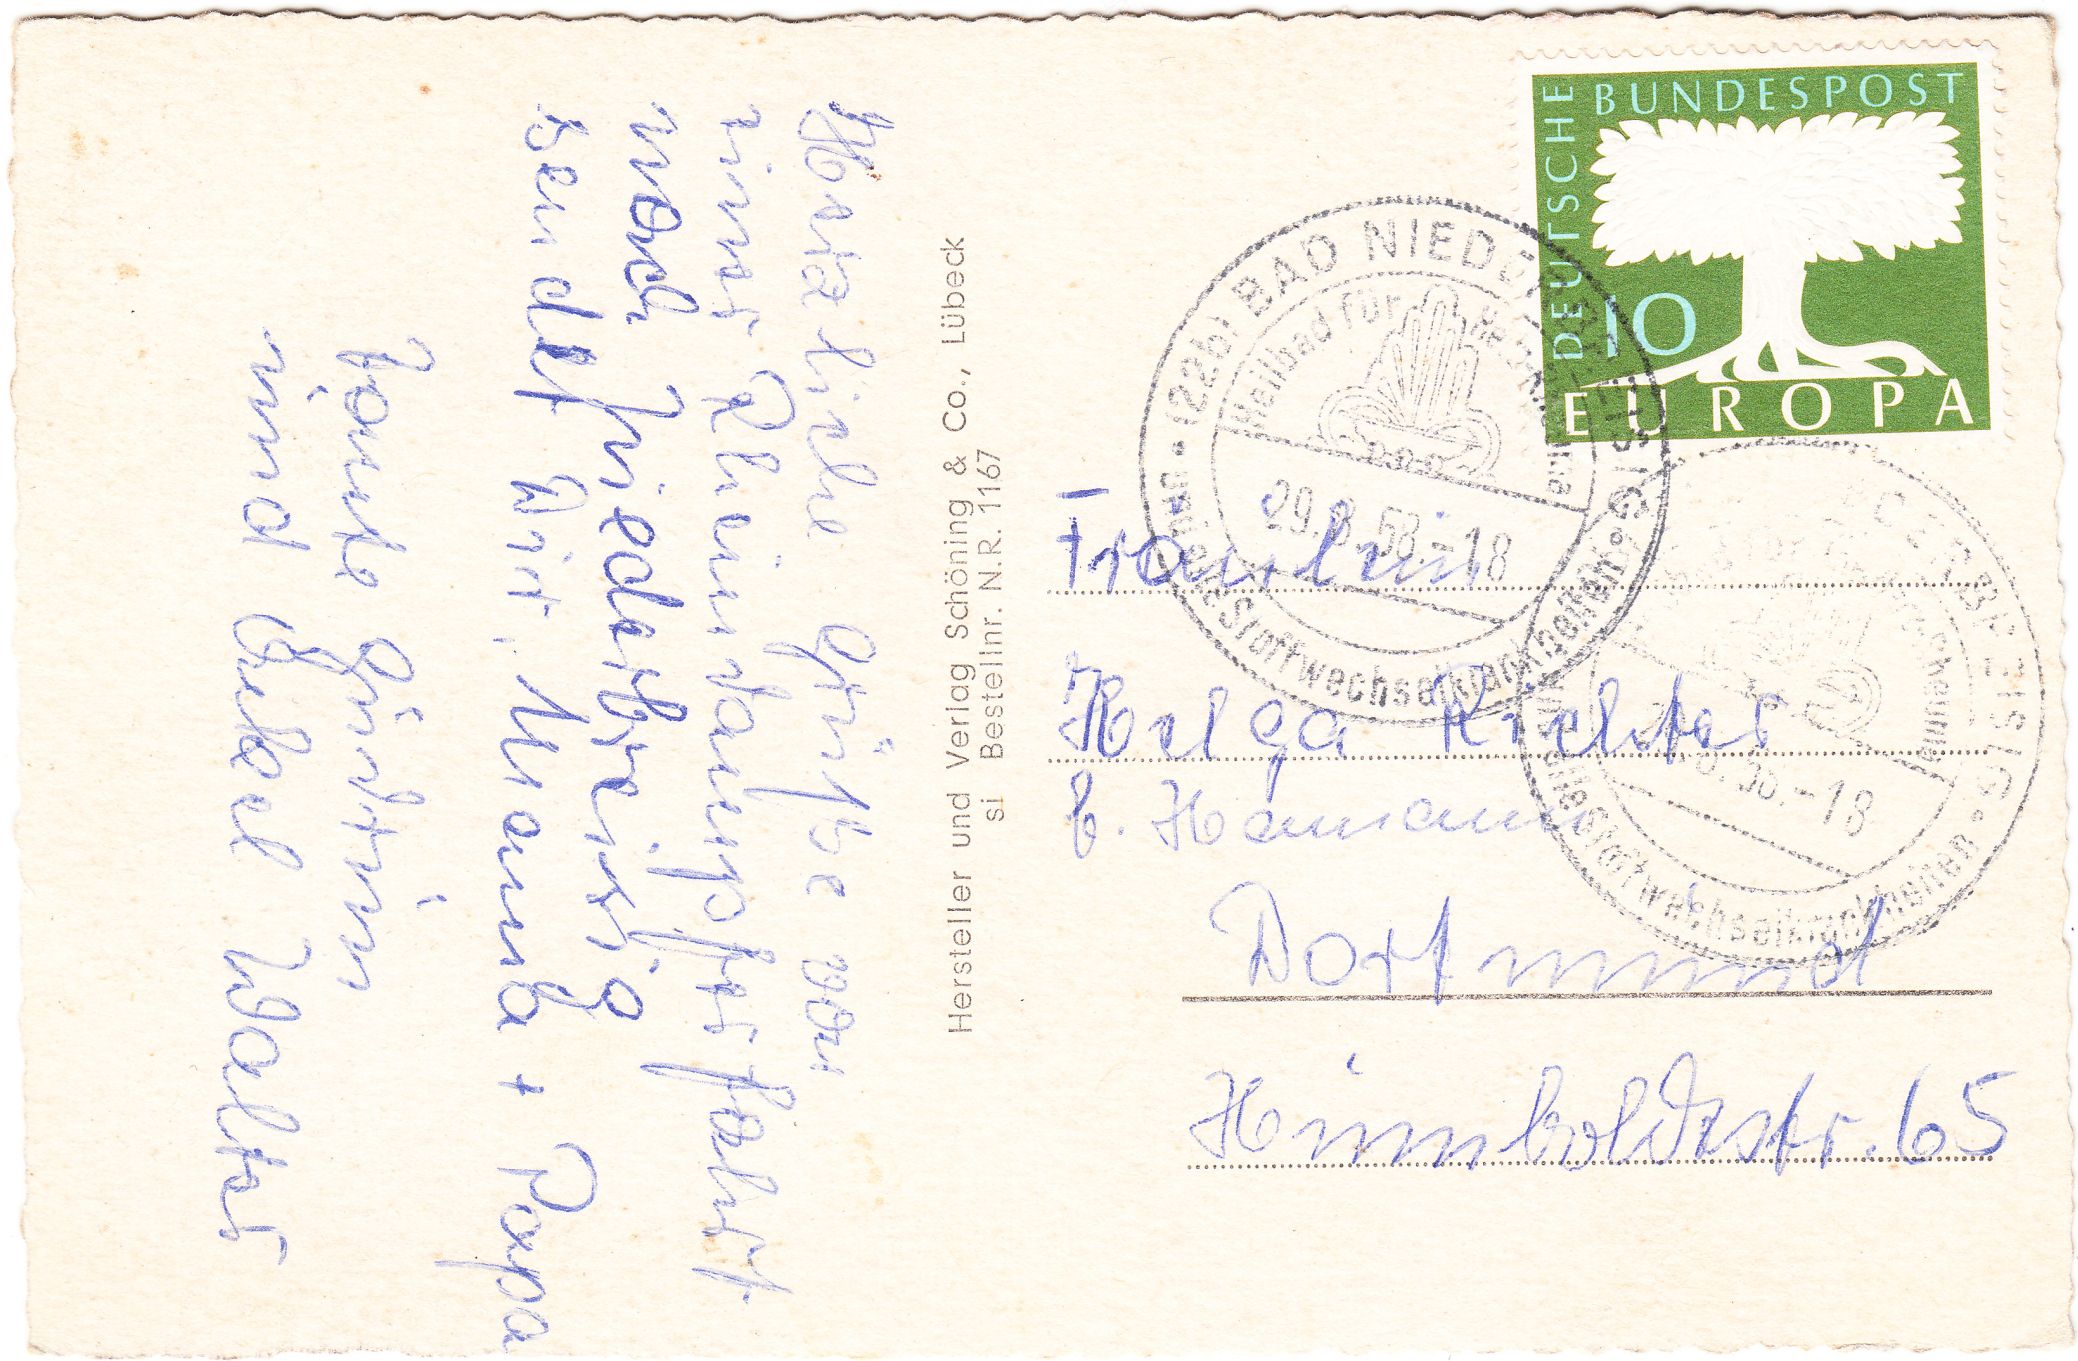 Herzliche Grüße von
einer Rheindampferfahrt
nach
sendet Dir, Mama + Papa
Tante Gürtrin
und Onkel Walter
Hersteller und Verlag Schöning & Co., Lübeck
si Bestellnr. N.R. 1167
DEUTSCHE BUNDESPOST
10
EUROPA
(22b) BAD NIEDERBREISIG
Heilbad für
29.8.58.-18
Stoffwechselkrankheiten
BREISIG
-18
Stoffwechselkrankheiten
Fräulein
Helga Richter
b. Hamann
Dortmund
Humboldtstr. 65